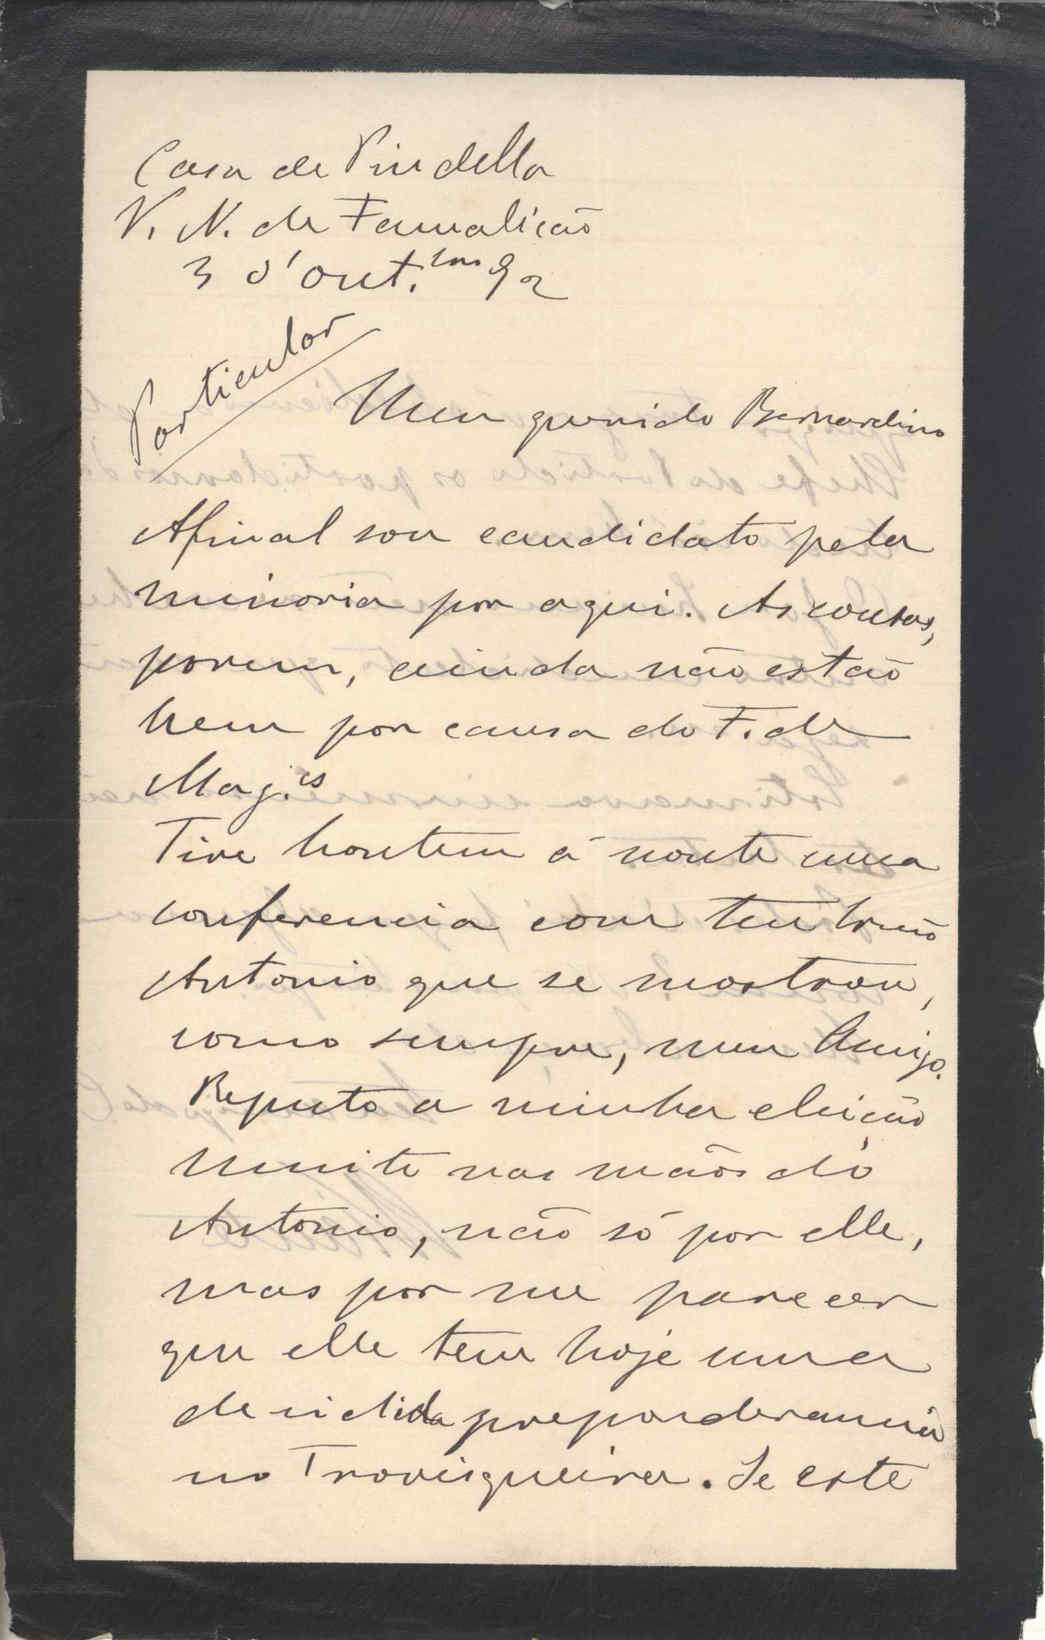 Casa de Pindella
V. N. de Famalicão
3 d'Out.bro 92
Particular
Meu querido Bernardino
Afinal sou candidato pela
minoria por aqui. As contas,
porem, ainda não estão
bem por causa do F. de
Mag.es
Tive hontem á noute uma
conferencia com teu Irmão
Antonio que se mostrou,
como sempre, meu Amigo.
Reputo a minha eleição
muito nas mãos do
Antonio, não só por elle,
mas por me parecer
que elle tem hoje uma
decidida preponderancia
no Trovisqueira. Se este